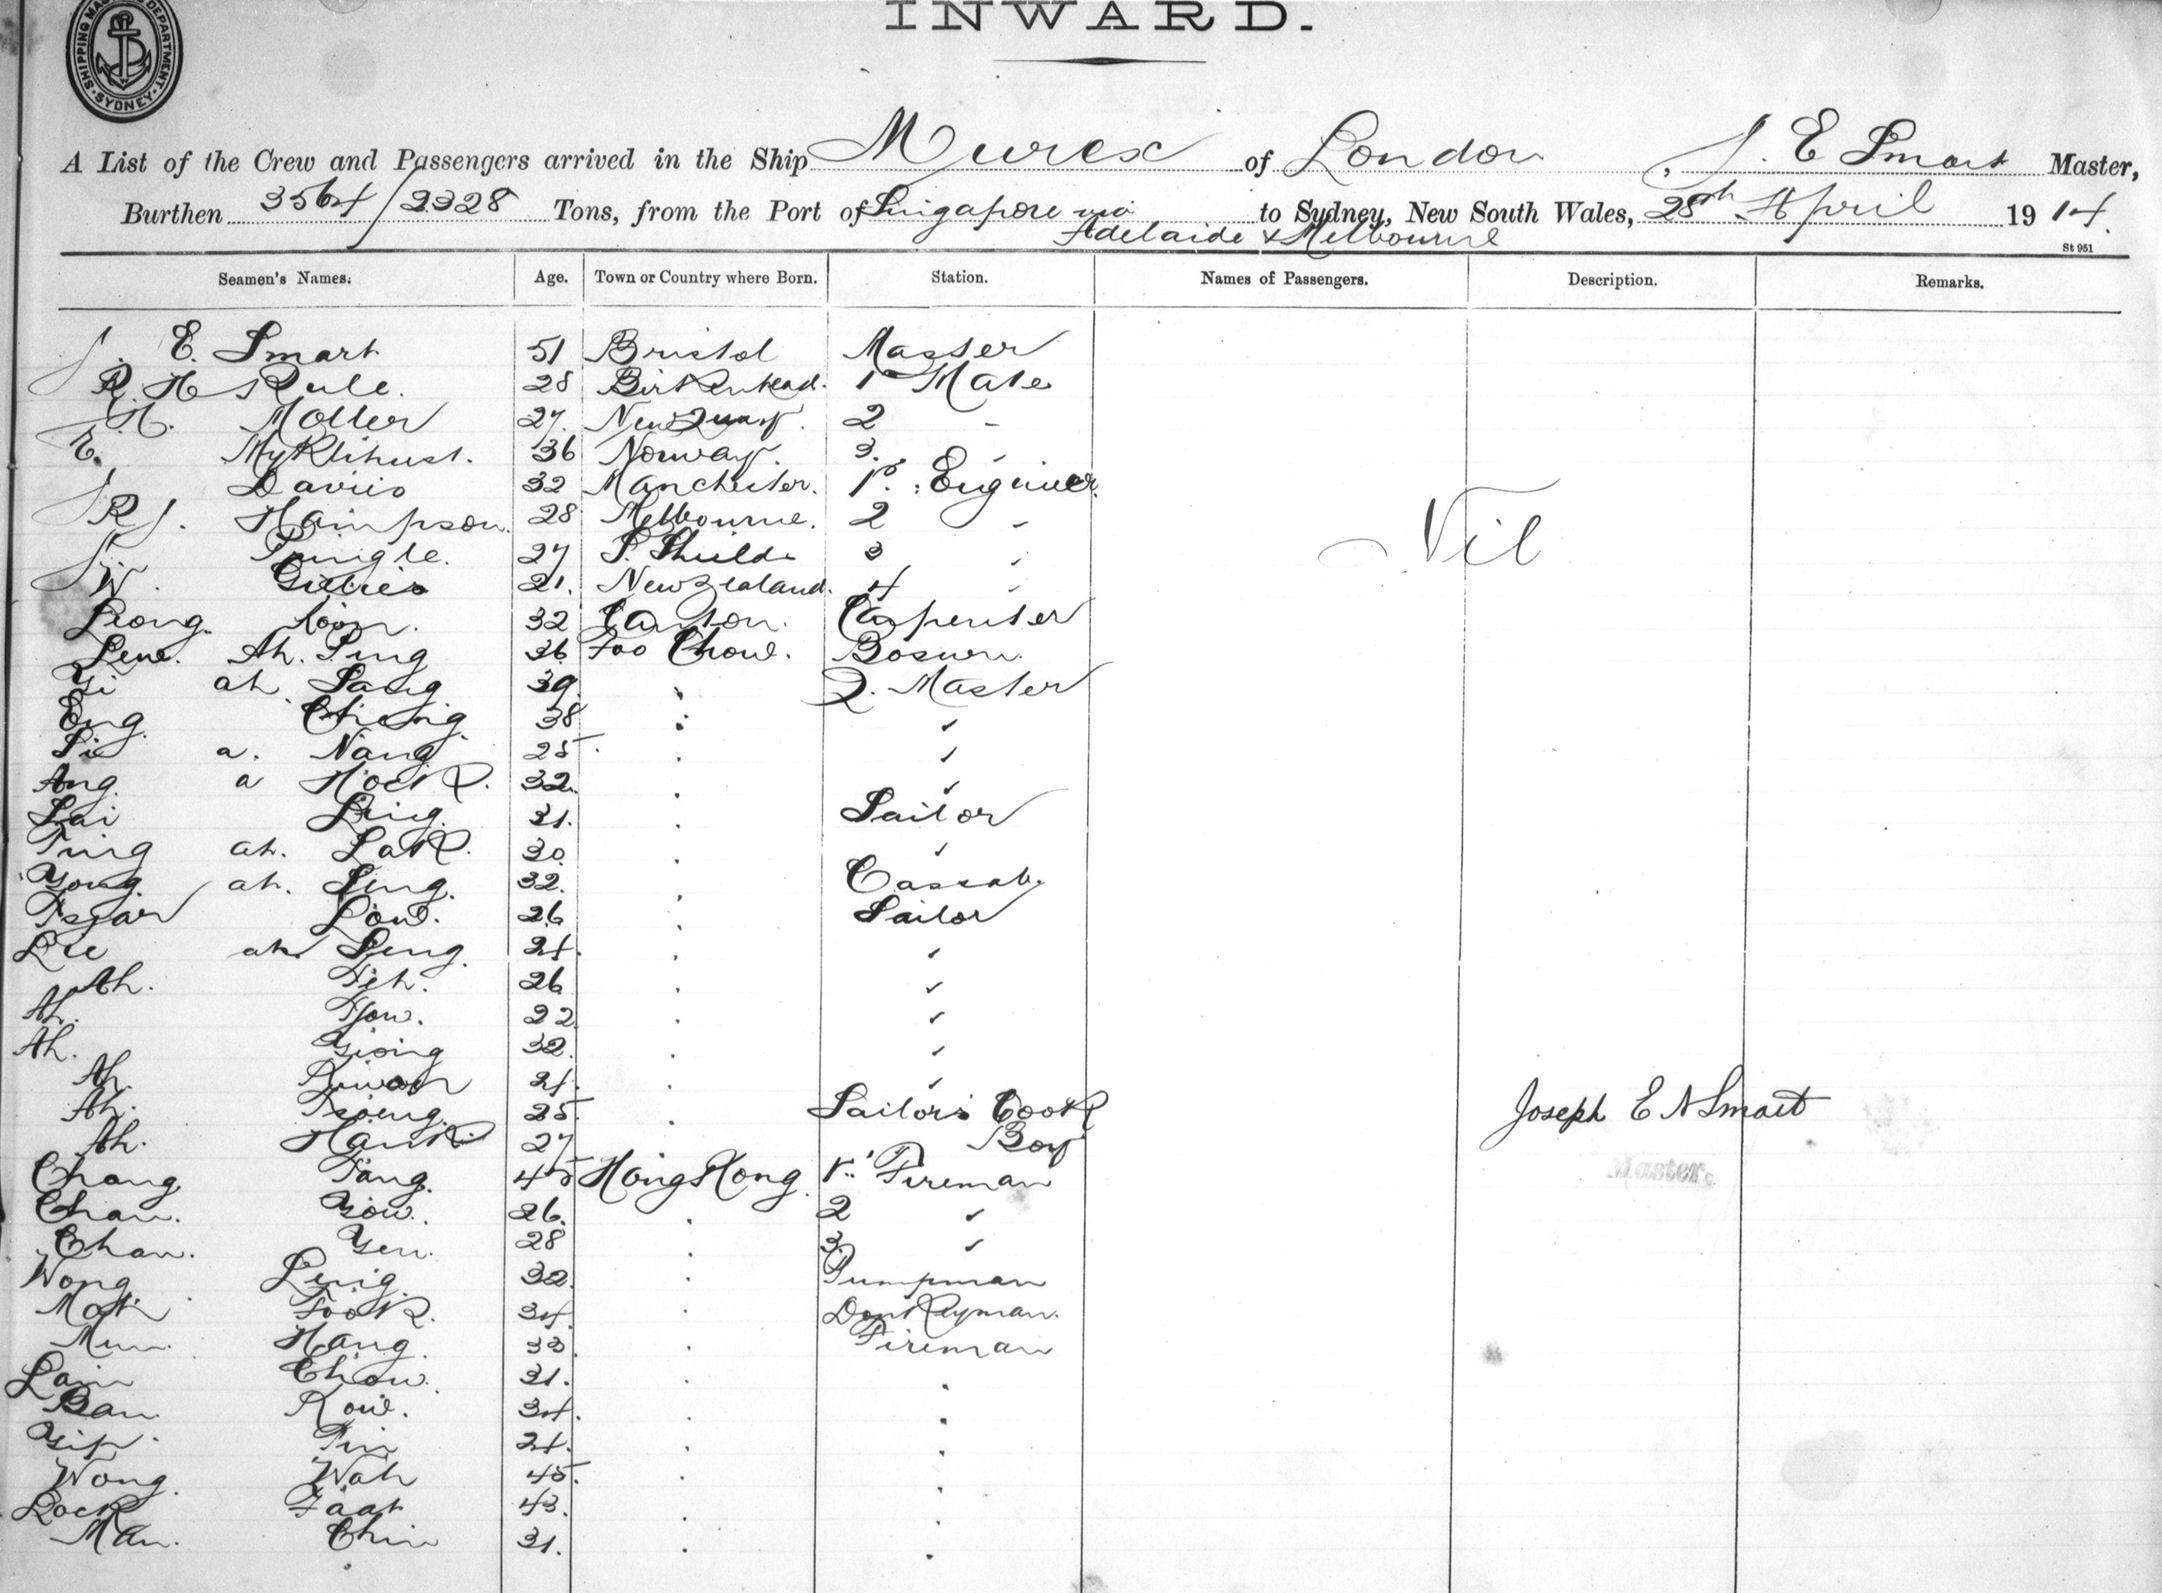 SHIPPING MASTERS DEPARTMENT SYDNEY
INWARD.
A List of the Crew and Passengers arrived in the Ship Murex of London, J. E Smart Master,
Burthen 3564/2328 Tons, from the Port of Singapore via to Sydney, New South Wales, 28th April 1914.
Adelaide & Melbourne
St 951
Seamen's Names. Age. Town or Country where Born. Station. Names of Passengers. Description. Remarks.
J. E. Smart 51 Bristol Master
R. H Rule. 28 Birkenhead. 1st Mate
H. Moller 27. New Quay. 2 "
E. Myklihust. 36 Norway. 3. "
J Davies 32 Manchester. 1st. Engineer.
R J. Hampson. 28 Melbourne. 2 "
Nil
J. Pringle. 27 S. Shields 3 "
W. Gillies 21. New Zealand. 4 "
Leong. Koon. 32 Canton. Carpenter
Lene. Ah. Ping 36 Foo Chow. Bosun.
Yi ah Sang 39. " Q. Master
Eng. Chiong. 38 " "
Si a. Nang 25. " "
Ang. a Hock. 32. " "
Lai Ling. 31. " Sailor
Ting ah. Lok. 30. " "
Yong. ah. Ling. 32. " Cassab.
Low. 26 " Sailor
Lee ah Leng. 24. " "
Ah. Teh. 26 " "
Ah. 22 " "
Ah. Giong 32. " "
Ah. 24. " "
Ah. Tsoeng. 25. " Sailors Cook
Joseph E A Smart
Ah. 27 Boy
Master.
Chong Tang. 45 Hong Kong. 1st Fireman
Chan. Yow. 26. " 2 "
Chan. Yen. 28 " 3. "
Wong Ling. 32. " Pumpman
Mok Fook. 34. " Donkeyman.
Mun. Hang. 33. " Fireman
Lam Chow. 31. " "
Ban. Kow. 34. " "
Yip. Tin 24. " "
Wong. Wah 45. " "
Lock Faat 43. " "
Man. Chin 31. " "